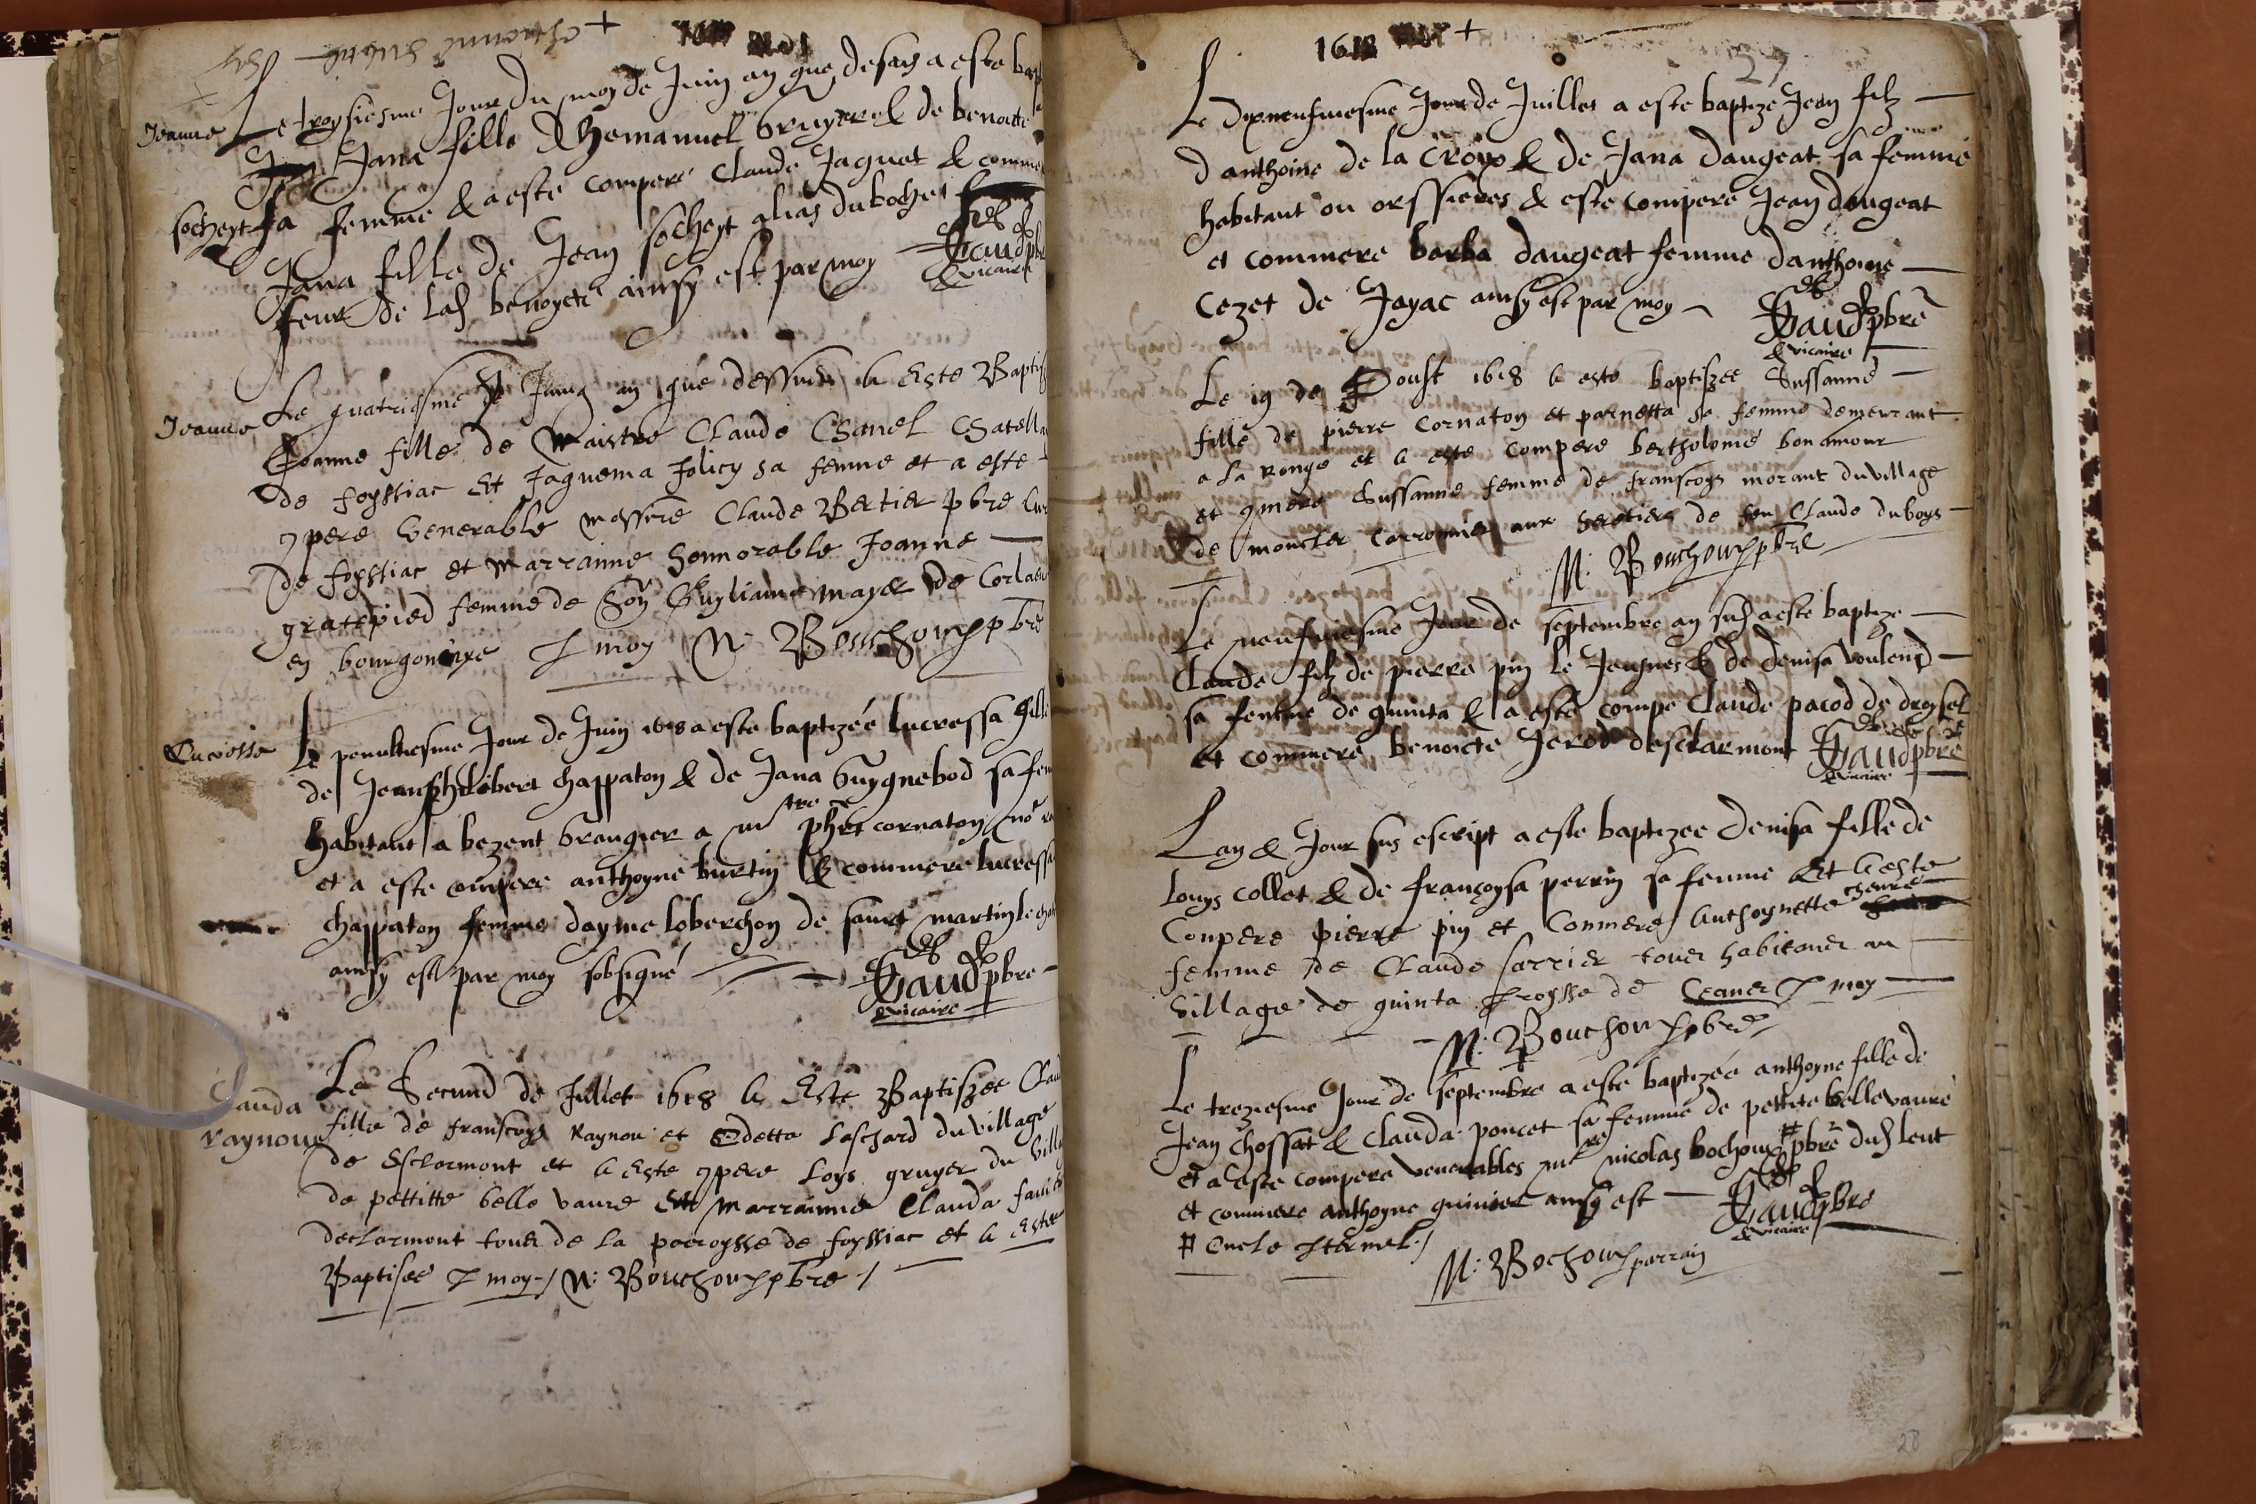 1618
Jeanne
Le troysiesme Jour du moy de Juin an que desus a este bap
Jana fille dhemanuel bruyere & de benoitte
socheyt sa femme & a este compere Claude Jaquet & comme
Jana fille de Jean socheyt alias duboches
seur de lad benoyete ainsy est par moy
Gaud pbre
& vicaire
Jeanne
Le quatriesme Juing an que dessus a Este Baptis
Joanne fille de Maistre Claude Chanel Chatella
de foyssiac Et Jaquema Jolicy sa femme et a este
9pere Venerable messire Claude Bertier pbre Cur
de foyssiac et Marrainne honnorable Joanne
gratepied femme de Guyliaume mayer de
en bourgoinne P moy N: Bouchoux pbre
Lucresse
Le penultiesme Jour de Juin 1618 a este baptizée lucressa fille
de Jean philibert chappaton & de Jana Guygnebod sa fem
habitant a bezent grangier a mre phe cornaton no
et a este compere anthoyne burtin & commere lucressa
chappaton femme dayme loberchon de sainct martin le
ainsy est par moy sobsigné
Gaud pbre
& vicaire
Clauda
Raynoue
Le Second de Juliet 1618 a Este Baptiszee Clau
fille de franscoys Raynou et Odetta Laschard du village
de Esclarmont et a Este 9pere Loys gruyer du villa
de pettitte belle vavre Et Marrainne Clauda
declarmont tous de la parroysse de foyssiac et a Estee
Baptisee P moy / N: Bouchoux pbre /
1618
27
Le dixneufviesme Jour de Juillet a este baptizé Jean filz
d anthoine de la Croyx & de Jana daugeat sa femme
habitant ou orssieres & este compere Jean daugeat
et commere barba daugeat femme danthoine
Cezet de Jayac ainsy est par moy
Gaud pbre
& vicaire
Le 19 de Aoust 1618 a esté baptiszee Sussanne
fille de pierre Cornaton et parnetta sa femme demeurant
a La Ronge et a este Compere bertholomé bonamour
et 9mere Sussanne femme de franscoys morant du village
de moncler aux heretiers de feu Claude duboys
N: Bouchoux pbre
Le neufviesme Jour de septembre an susd a este baptize
Claude filz de pierre pin le Jeusnes & de denisa
sa femme de quinta & a este compe Claude pacod de droysel
et commere benoicte Jerod desclarmont
Gaud pbre
& vicaire
Lan & Jour sus escript a este baptizee denisa fille de
Louys Collet & de françoysa perrin sa femme Et a este
Conpere pierre pin et Conmere Anthoynette chevre
femme de Claude sarrier tous habitans au
village de quinta proysse de P moy
N: Bouchoux pbre
Le treziesme Jour de septembre a esté baptizée anthoyne fille de
Jean chossat & Clauda poncet sa femme de pettite bellevavre
et a este compere venerables mre nicolas bochoux # pbre dud lent
et commere anthoyne guinier ainsy est
Gaud pbre
& vicaire
# Oncle Pternel /
N: Bochoux parrain
28